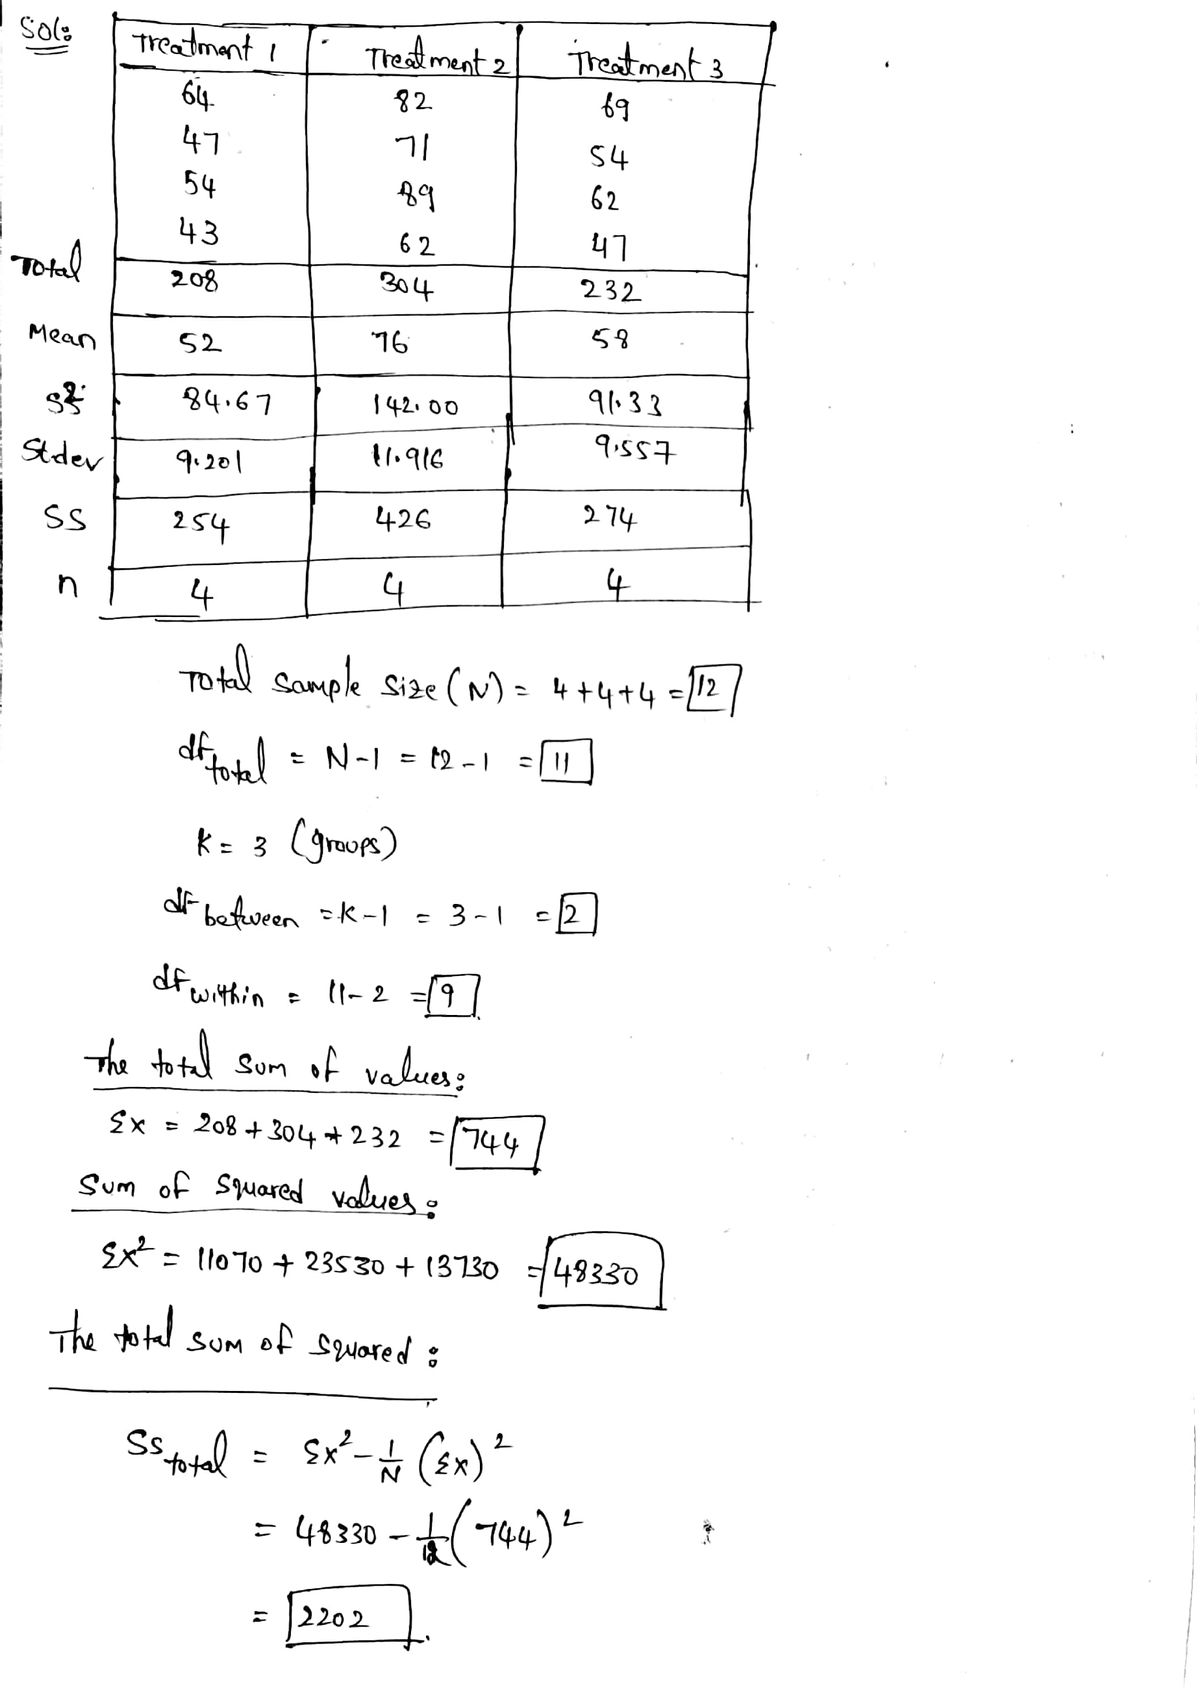 Sol:
Treatment 1 Treatment 2 Treatment 3
64 82 69
47 71 54
54 89 62
43 62 47
Total 208 304 232
Mean 52 76 58
S² 84.67 142.00 91.33
St.dev 9.201 11.916 9.557
SS 254 426 274
n 4 4 4
Total sample size (N) = 4+4+4 = 12
df total = N-1 = 12-1 = 11
K = 3 (groups)
df between = K-1 = 3-1 = 2
df within = 11-2 = 9
The total sum of values:
Σx = 208+304+232 = 744
Sum of squared values:
Σx² = 11070 + 23530 + 13730 = 48330
The total sum of squared:
SS total = Σx² - 1/N (Σx)²
= 48330 - 1/12 (744)²
= 2202